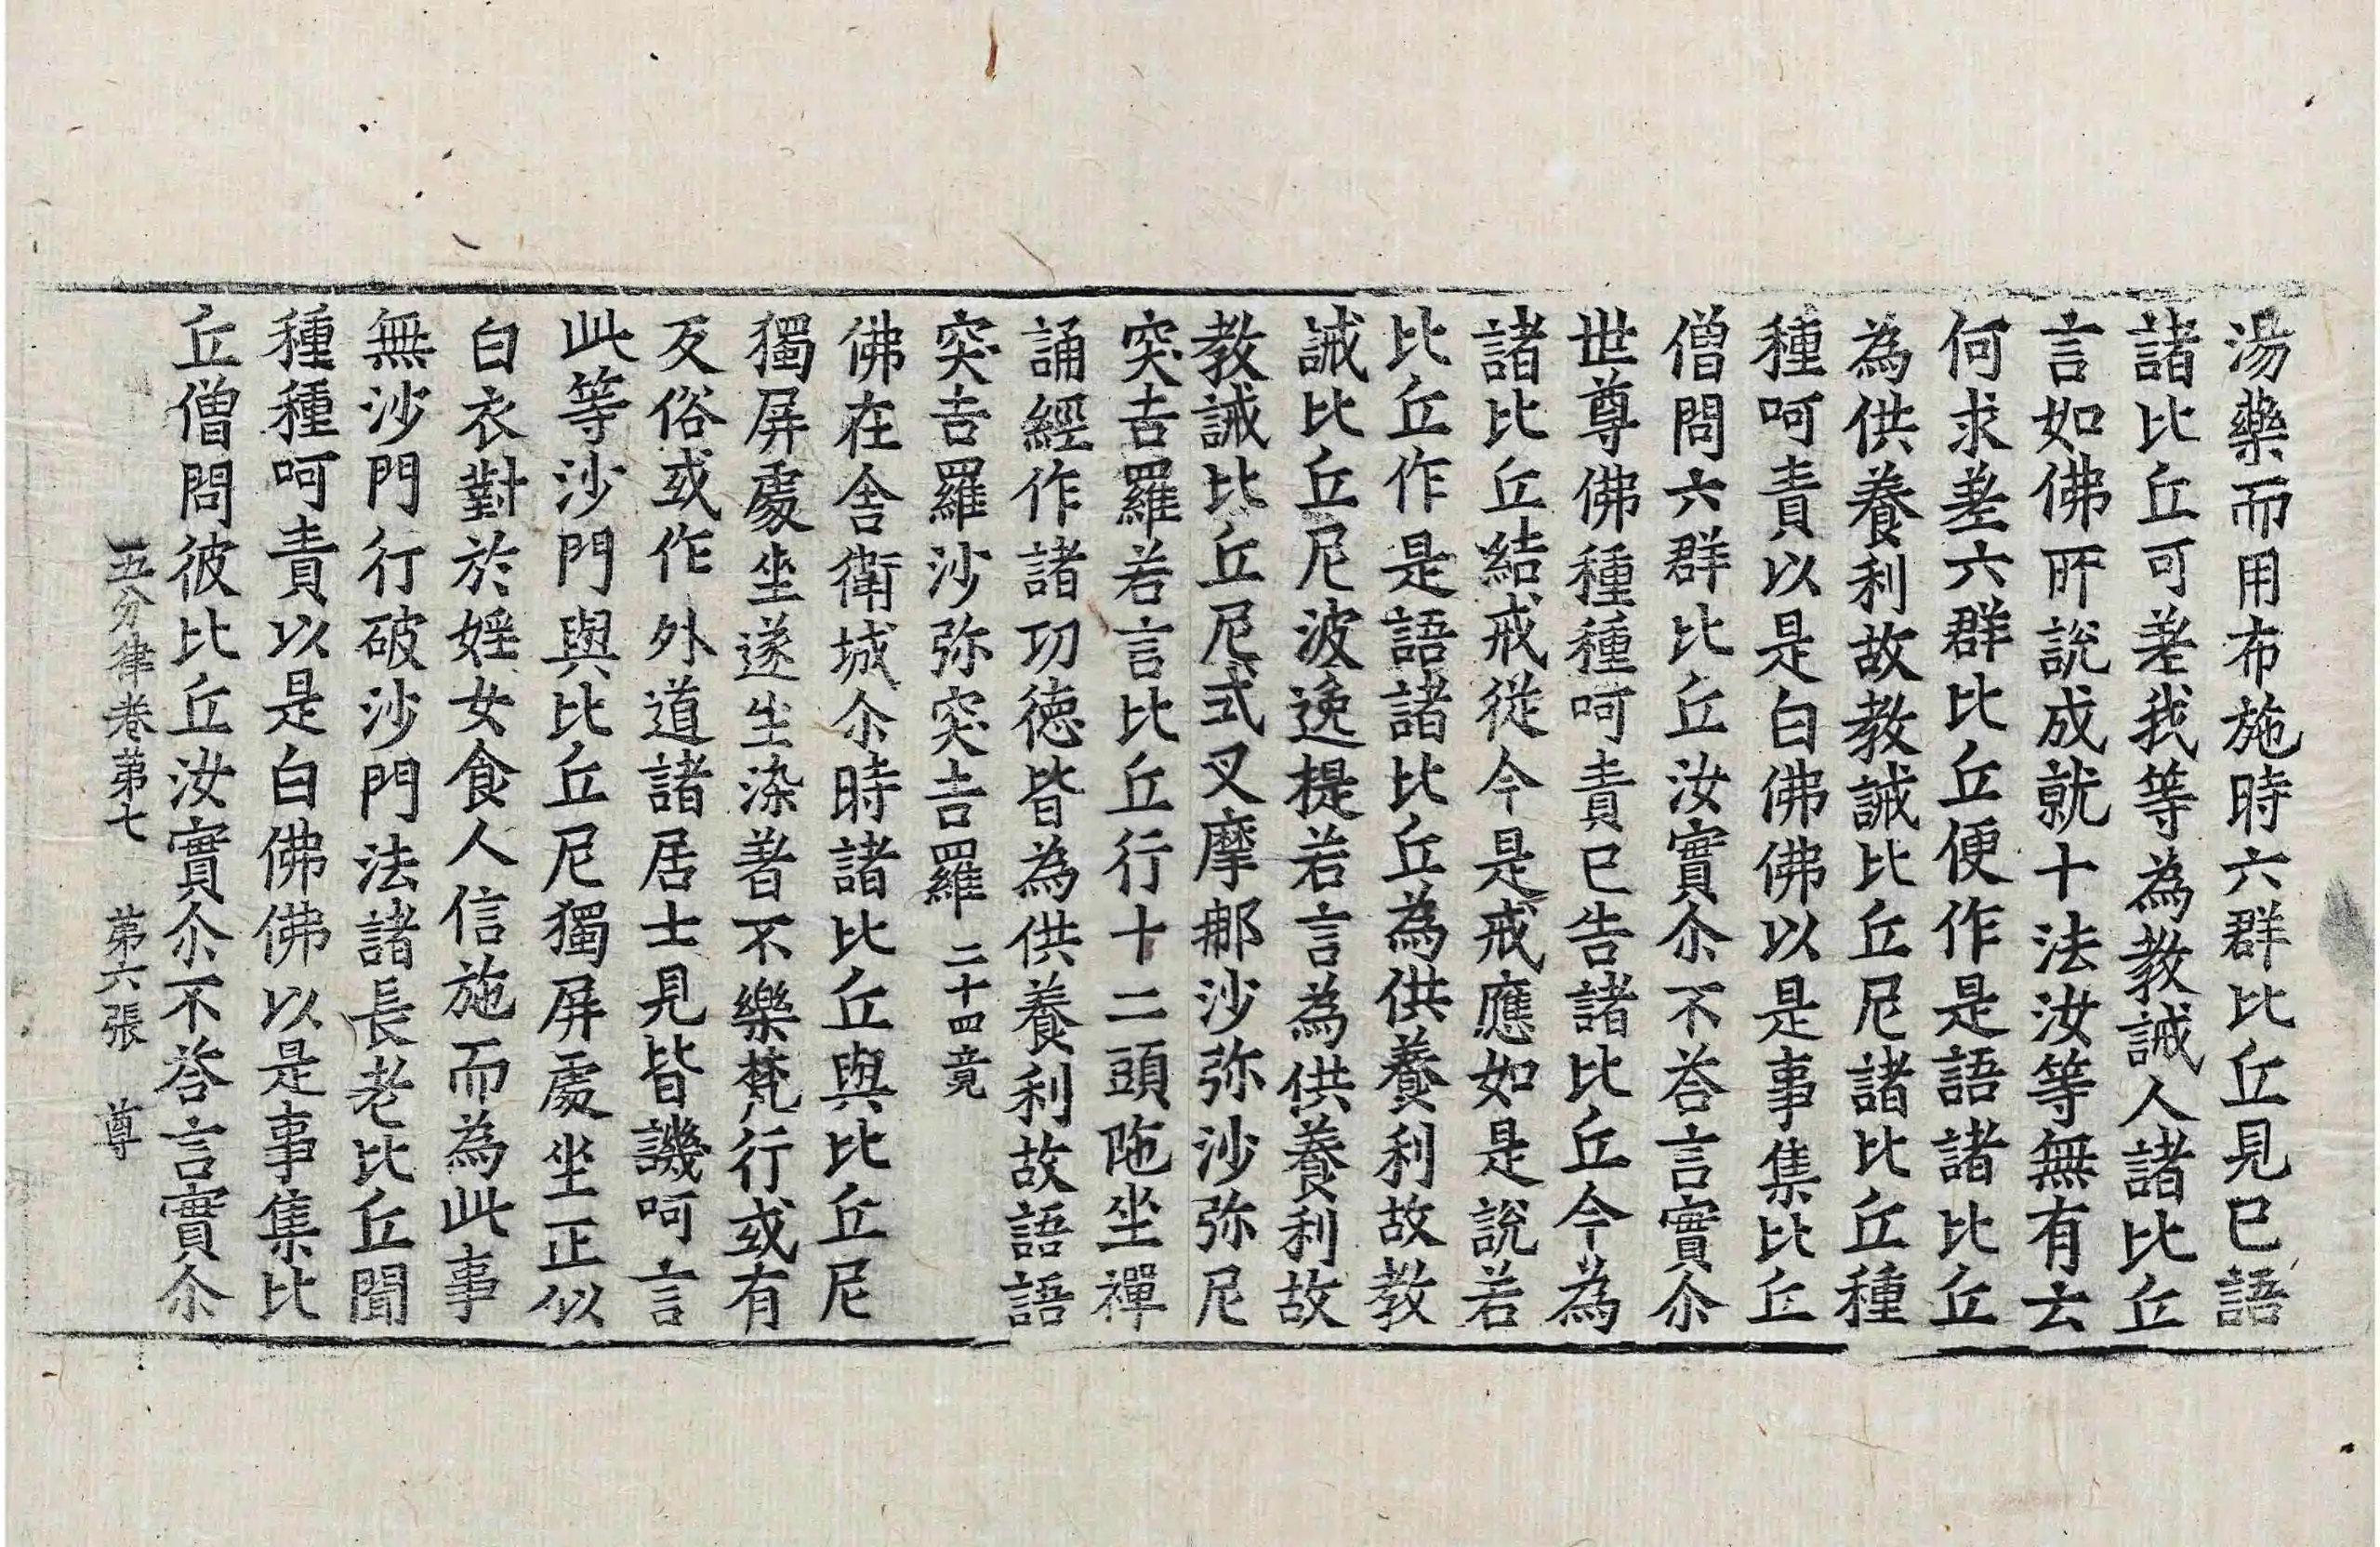 湯藥而用布施時六群比丘見已語
諸比丘可差我等為教誡人諸比丘
言如佛所說成就十法汝等無有去
何求差六群比丘便作是語諸比丘
為供養利故教誡比丘尼諸比丘種
種呵責以是白佛佛以是事集比丘
僧問六群比丘汝實尒不荅言實尒
世尊佛種種呵責已告諸比丘今為
諸比丘結戒從今是戒應如是說若
比丘作是語諸比丘為供養利故教
誡比丘尼波逸提若言為供養利故
教誡比丘尼式叉摩那沙弥沙弥尼
突吉羅若言比丘行十二頭陁坐禪
誦經作諸功德皆為供養利故語語
突吉羅沙弥突吉羅 二十四竟
佛在舍衛城尒時諸比丘與比丘尼
獨屏處坐遂生染著不樂梵行或有
反俗或作外道諸居士見皆譏呵言
此等沙門與比丘尼獨屏處坐正似
白衣對於婬女食人信施而為此事
無沙門行破沙門法諸長老比丘聞
種種呵責以是白佛佛以是事集比
丘僧問彼比丘汝實尒不荅言實尒
五分律卷第七 第六張 尊